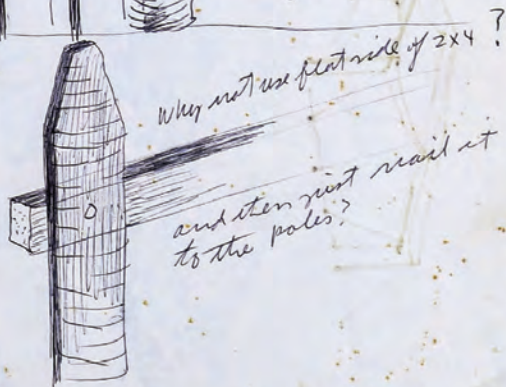 Why not use flat side of 2x4 ?
and then just nail it
to the poles?